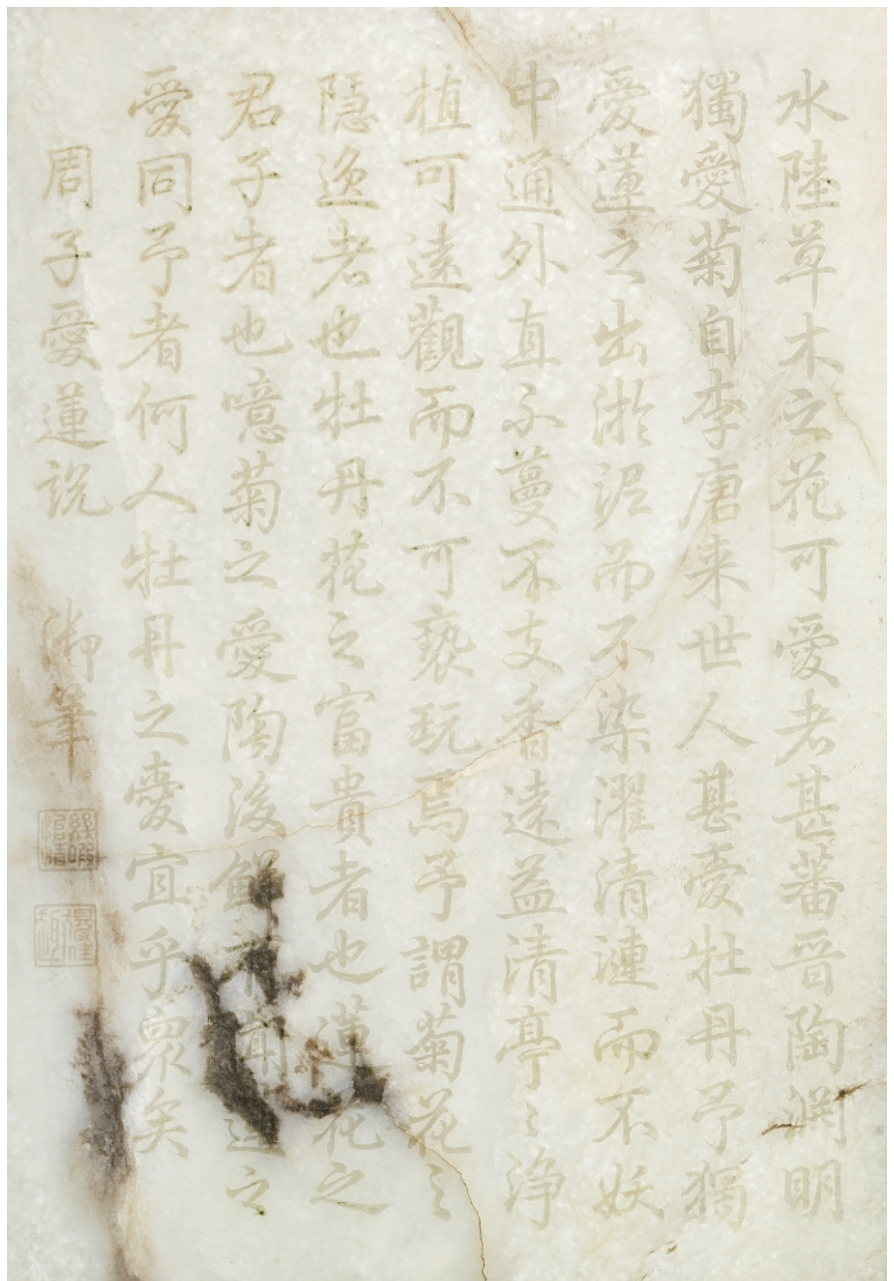 水陸草木之花可愛者甚蕃晉陶淵明
獨愛菊自李唐来世人甚愛牡丹予獨
愛蓮之出淤泥而不染濯清漣而不妖
中通外直不蔓不支香遠益清亭〻淨
植可遠觀而不可褻玩焉予謂菊花之
隱逸者也牡丹花之富貴者也蓮花之
君子者也噫菊之愛陶後鮮有聞蓮之
愛同予者何人牡丹之愛宜乎衆矣
周子愛蓮說 御筆
幾暇怡情
得佳趣